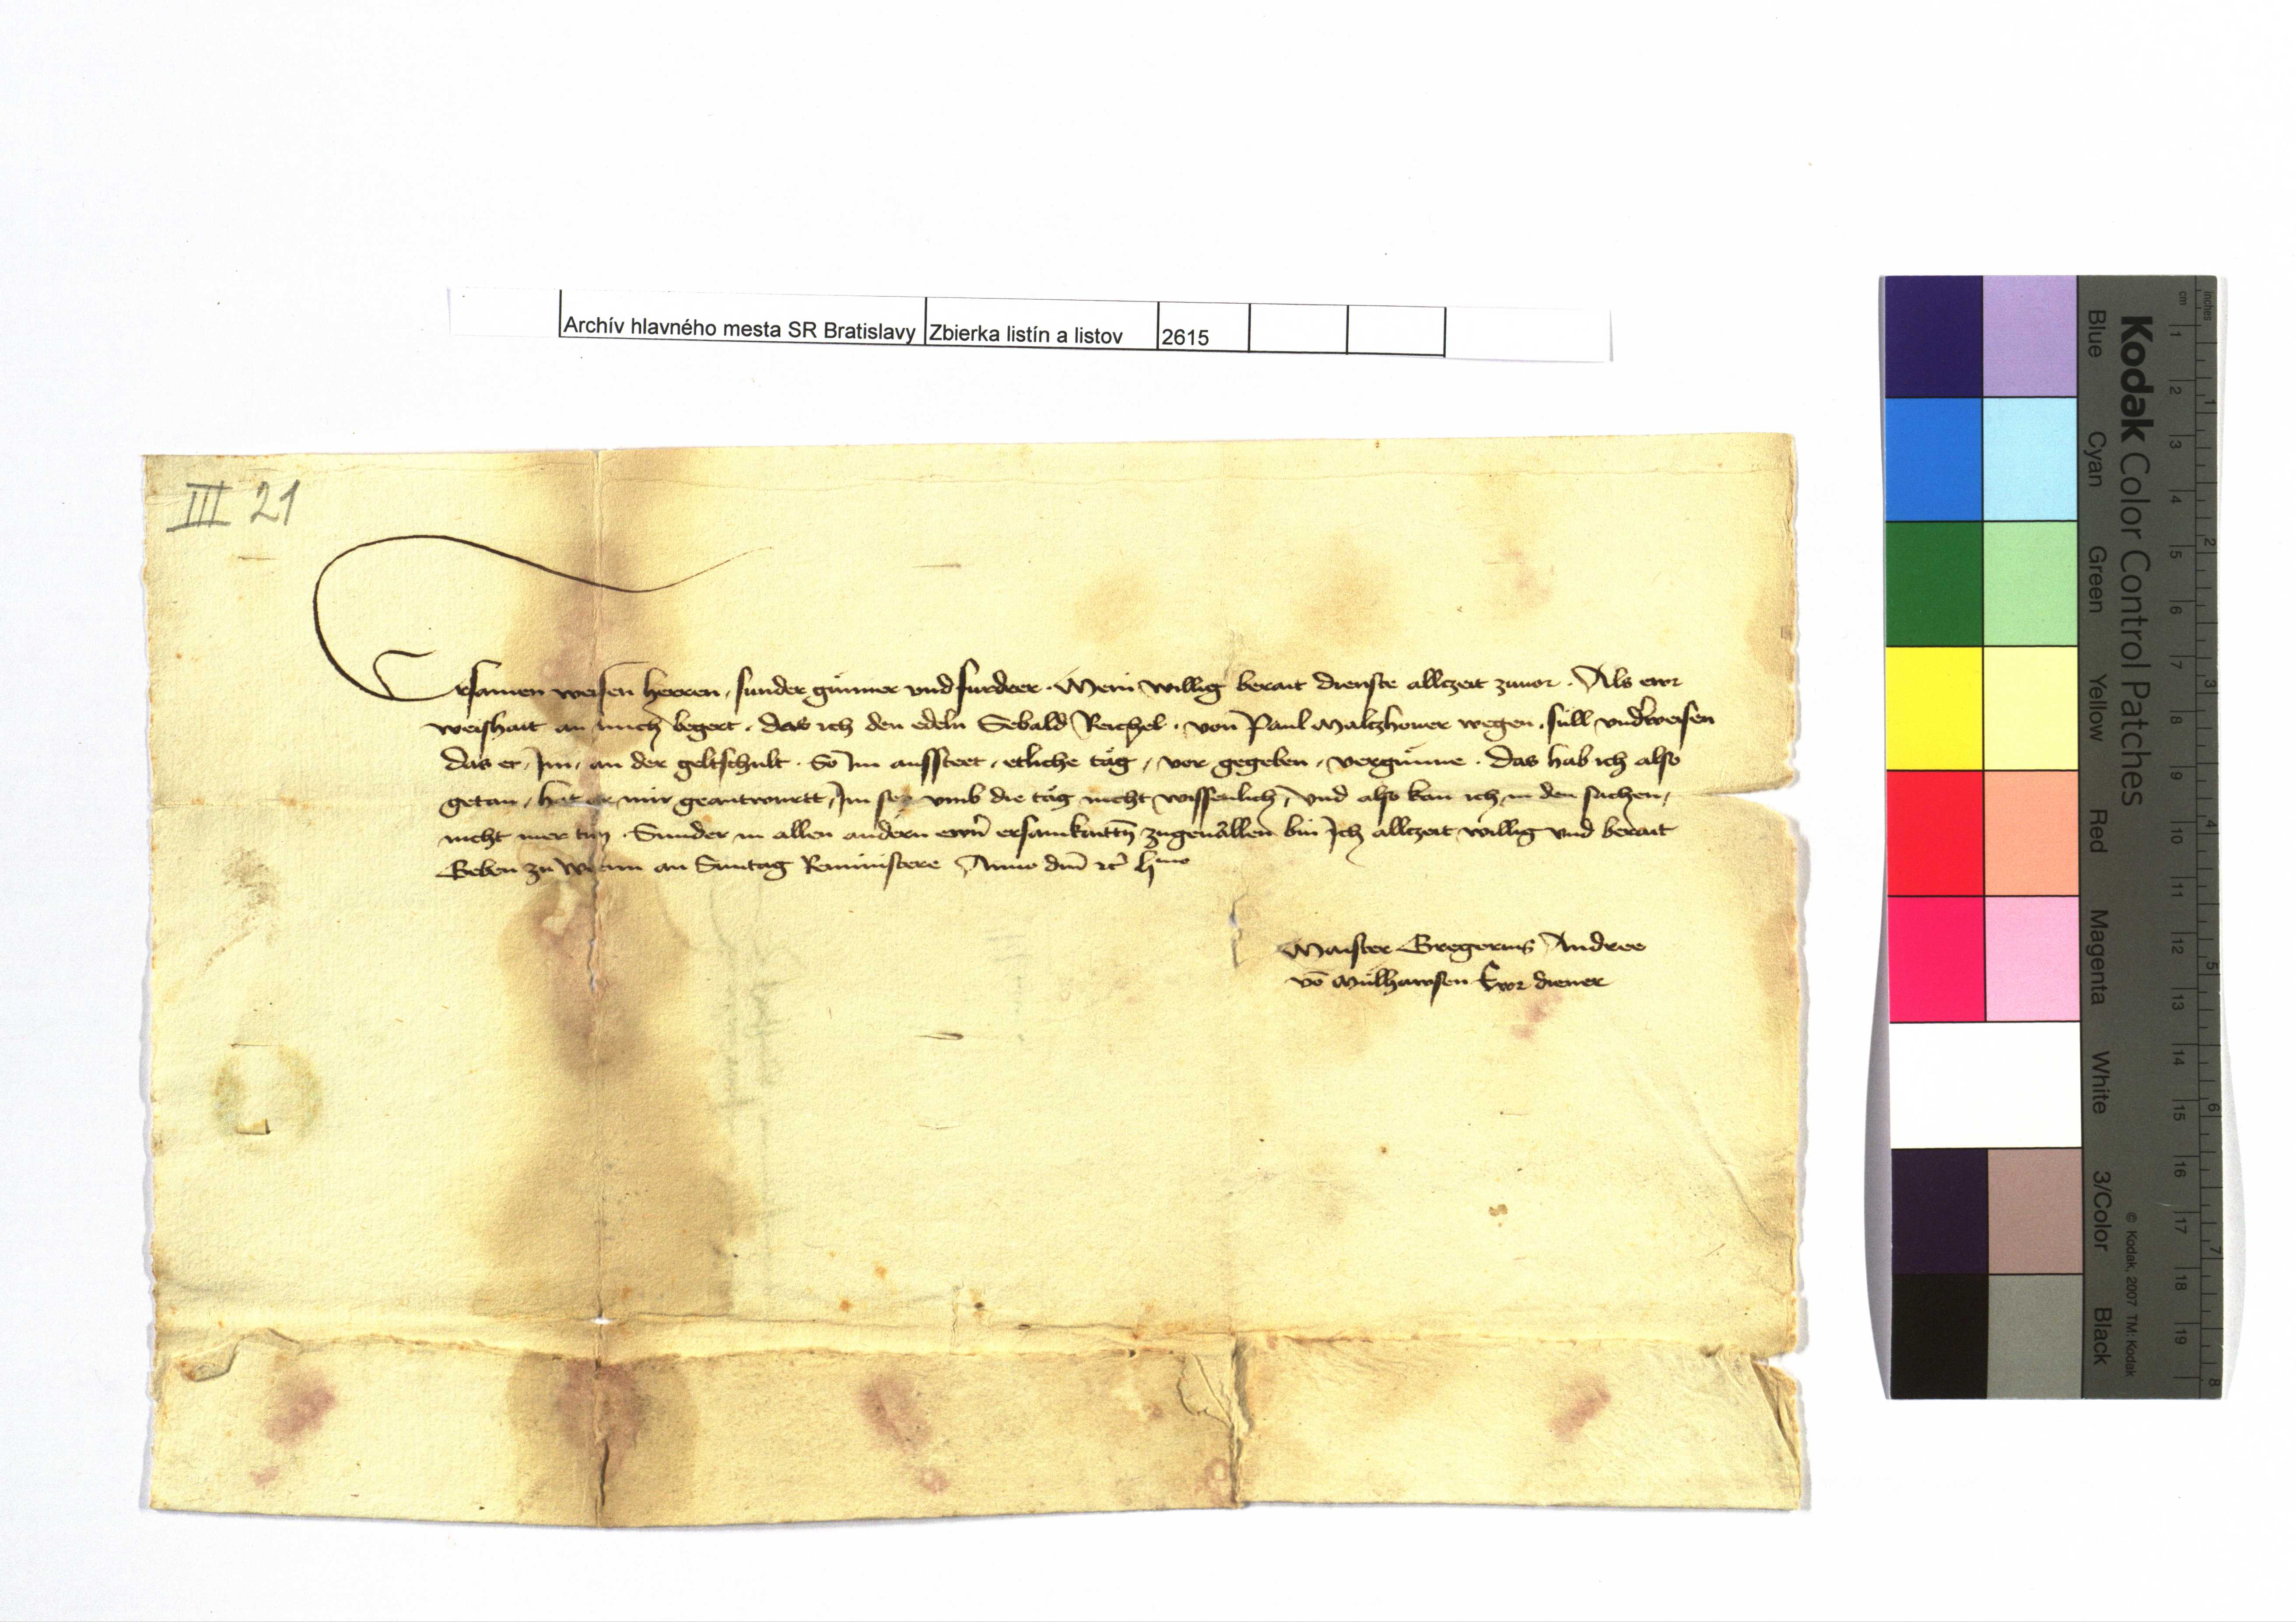 Archív hlavného mesta SR Bratislavy Zbierka listín a listov 2615
III 21
Ersamen weisen herren, sunder gunner vnd furdrer. Mein willig berait dienste allczeit zuuor. Als ewr
weishait an mich begert. das ich den edeln Sebald Reichel. von Paul Maltzhouer wegen. süll vnd'weisen
das er, Im, an der geltschult. So Im aussteet, etliche täg, vor gegeben, vergünne. das hab ich also
getan, hat er mir geantwurtt, Im sey vmb die täg nicht wissenlich, vnd also kan ich, in den sachen,
nicht mer tun. Sunder in allen andern ewrn ersamkaittn̄ zugeuällen bin Ich allczeit willig vnd berait
Geben zu Wienn an Suntag Reminiscere Anno dm̄ etc̄ Lmo
Maister Gregorius Andree
vō Mülhawsen Ewr diener
Kodak Color Control Patches
Blue Cyan Green Yellow Red Magenta White 3/Color Black
© Kodak, 2007 TM: Kodak
inches 1 2 3 4 5 6 7 8
cm 1 2 3 4 5 6 7 8 9 10 11 12 13 14 15 16 17 18 19